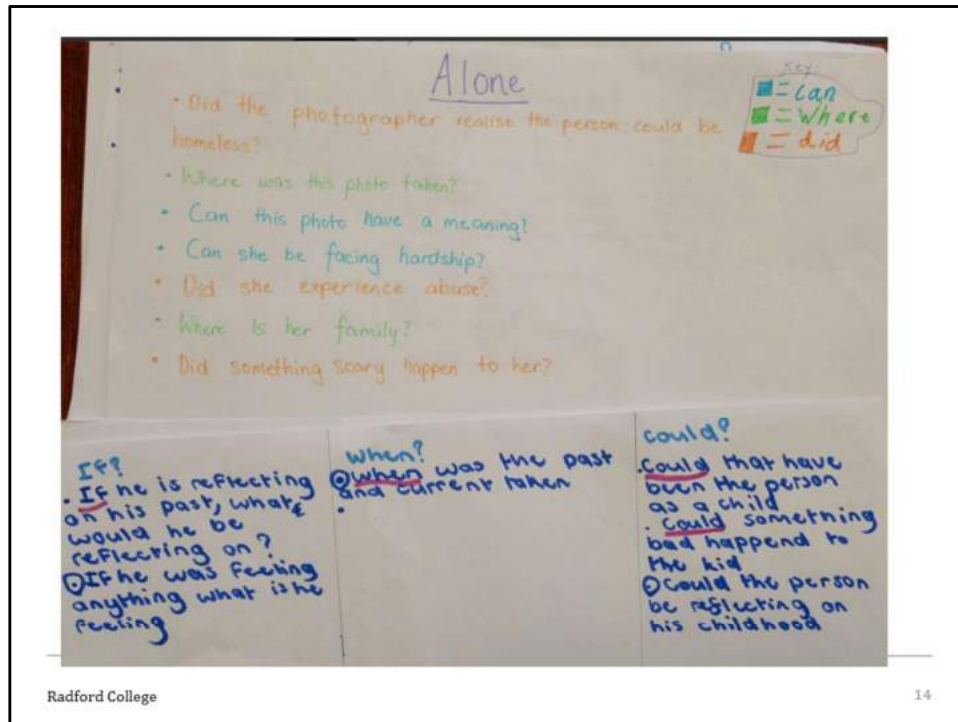 Alone
Key:
= Can
= Where
= did
• Did the photographer realise the person could be
homeless?
• Where was this photo taken?
• Can this photo have a meaning?
• Can she be facing hardship?
• Did she experience abuse?
• Where is her family?
• Did something scary happen to her?
If?
• If he is reflecting
on his past, what
would he be
reflecting on?
If he was feeling
anything what is he
feeling
when?
when was the past
and current taken
•
could?
• Could that have
been the person
as a child
• Could something
bad happend to
the kid
Could the person
be reflecting on
his childhood
Radford College
14